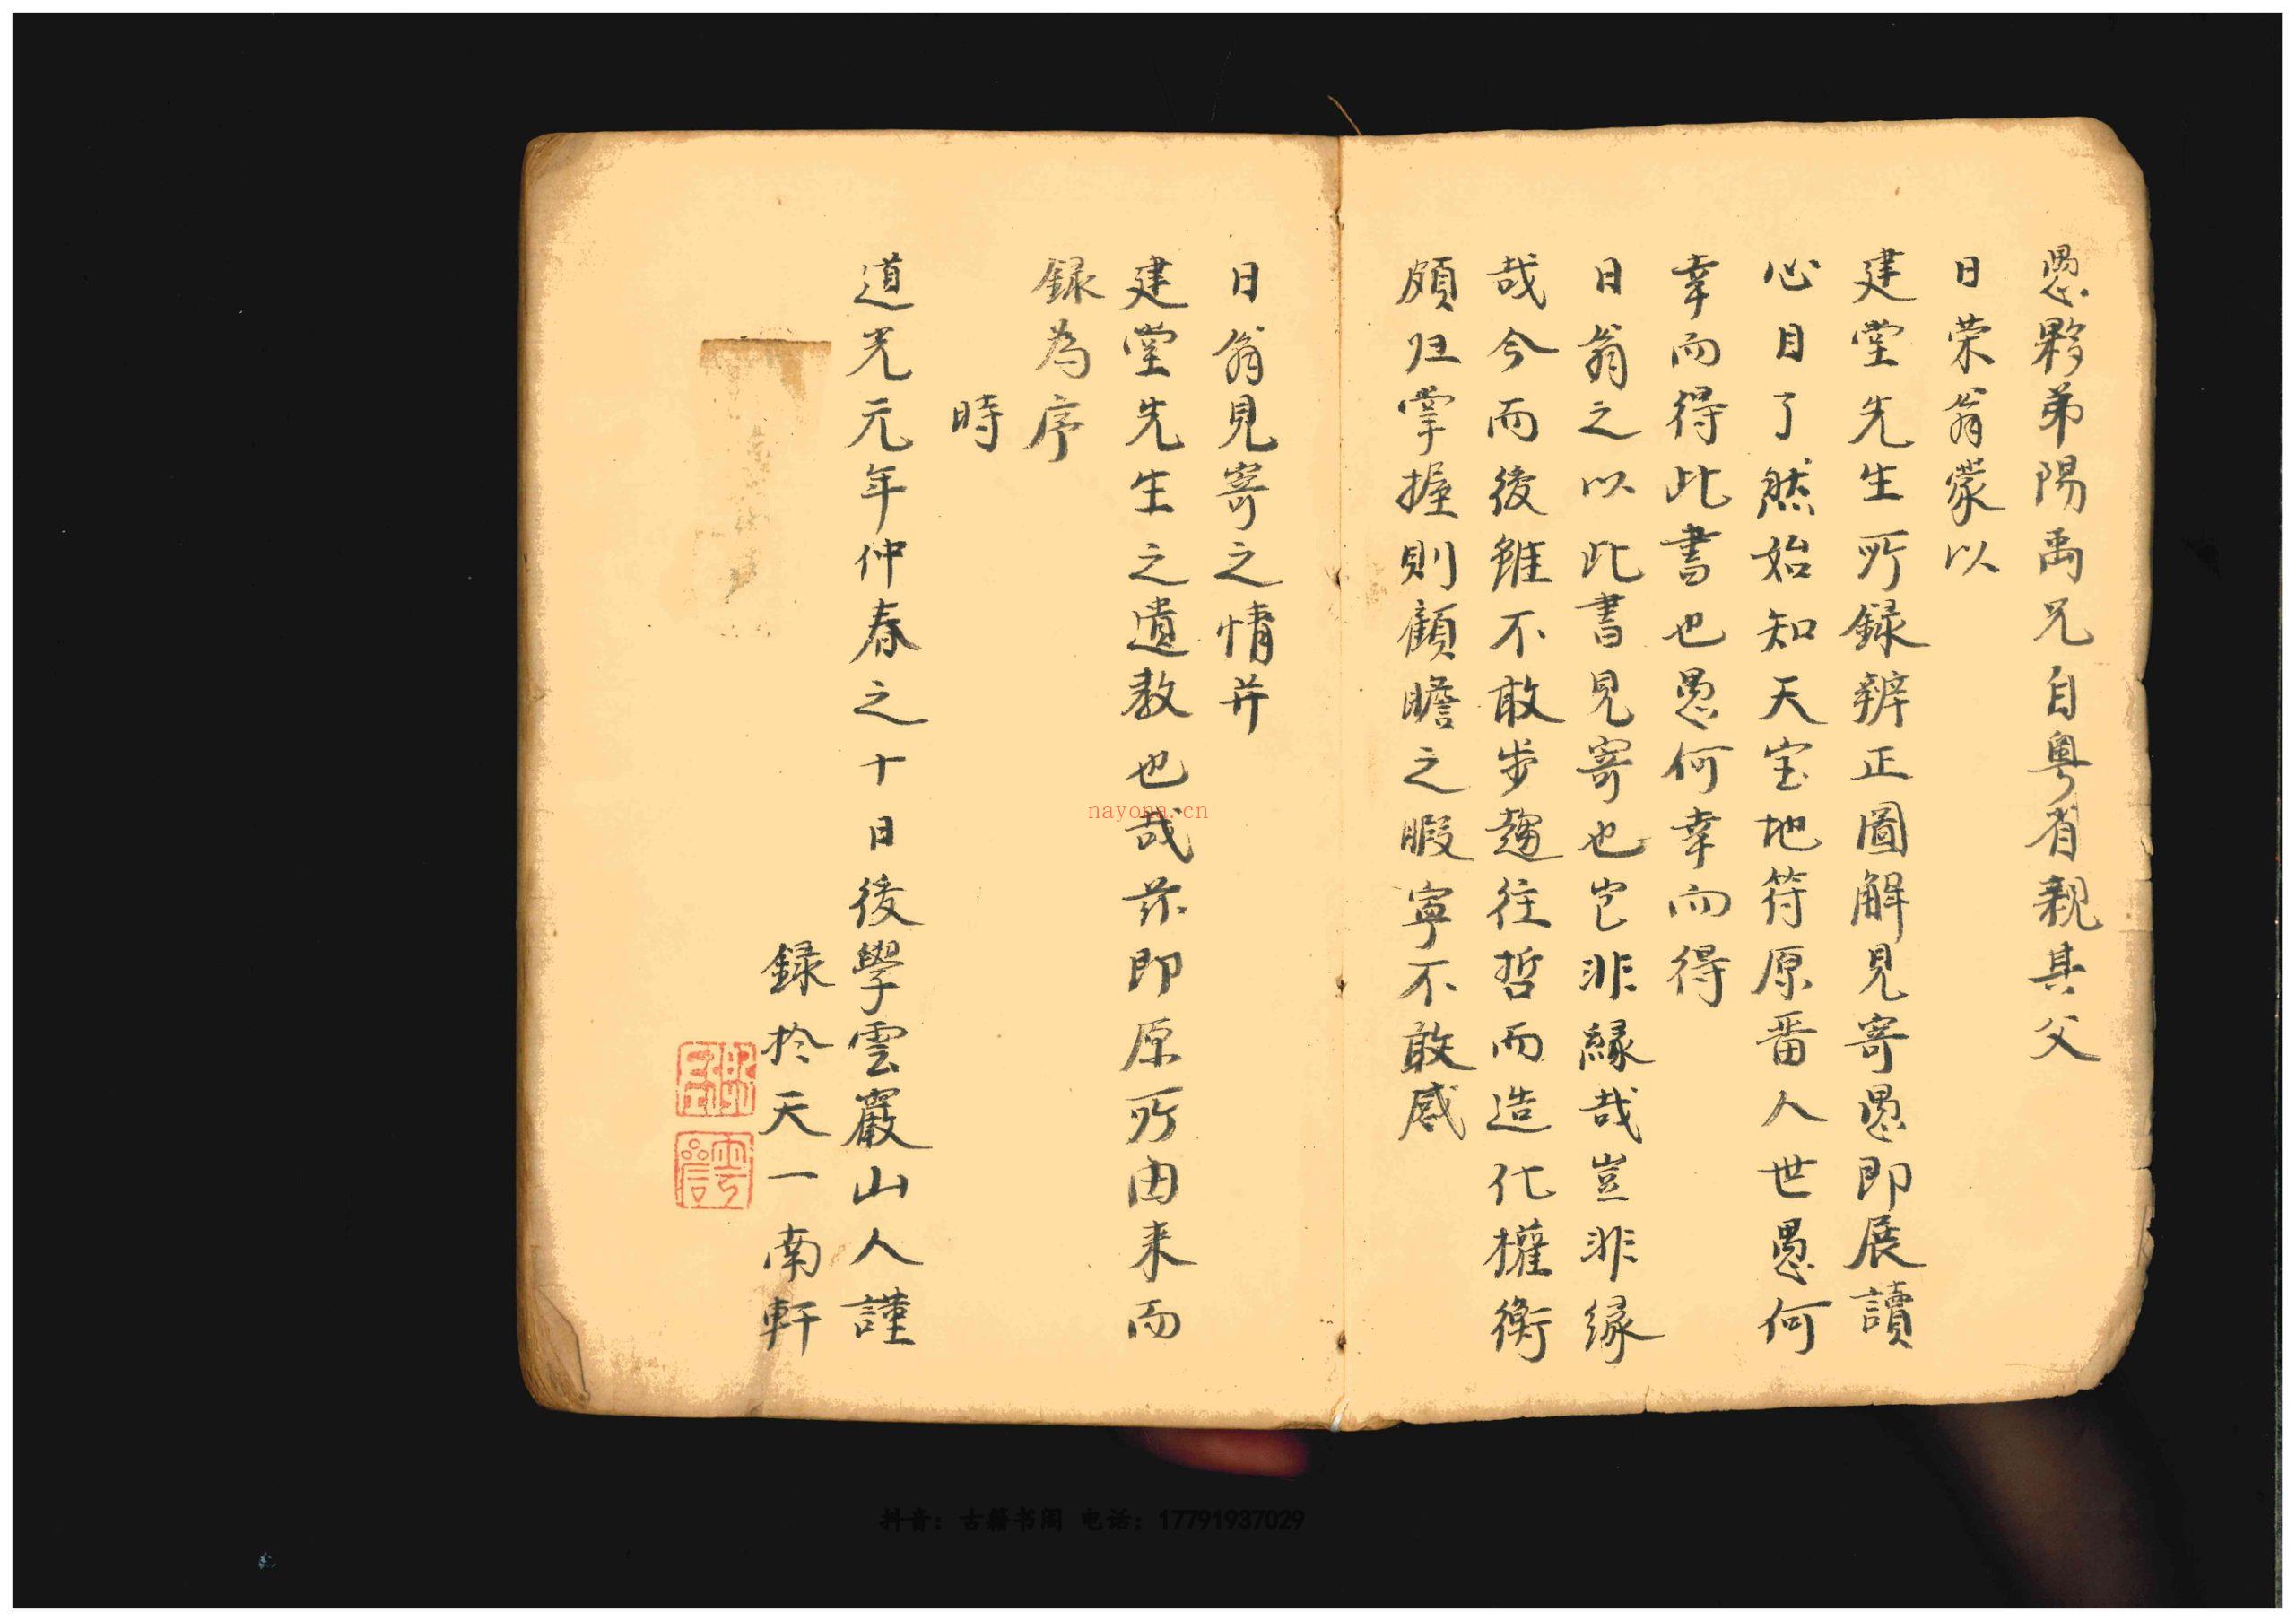 愚夥弟陽禹兄自粵省親其父
日荣翁蒙以
建堂先生所録辨正圖解見寄愚即展讀
心目了然始知天宝地符原畨人世愚何
幸而得此書也愚何幸而得
日翁之以此書見寄也岂非緣哉豈非缘
哉今而後雖不敢步趨往哲而造化權衡
頗归掌握則顧瞻之暇寧不敢感
日翁見寄之情并
建堂先生之遺教也哉茲即原所由来而
録為序
時
道光元年仲春之十日後學雲巖山人謹
録於天一南軒
nayona.cn
抖音：古籍书阁 电话：17791937029